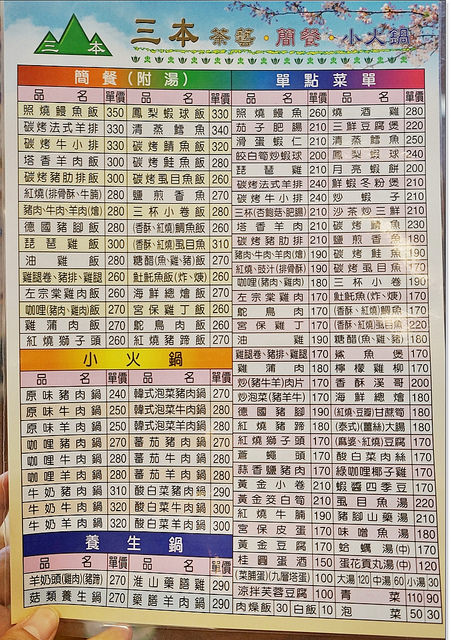 三本
三本 茶藝·簡餐·小火鍋
簡餐(附湯)
品名 單價 品名 單價
照燒鰻魚飯 350 鳳梨蝦球飯 330
碳烤法式羊排 330 清蒸鱈魚 340
碳烤牛小排 330 碳烤鯖魚飯 320
塔香羊肉飯 300 碳烤鮭魚飯 280
碳烤豬肋排飯 300 碳烤虱目魚飯 260
紅燒(排骨酥·牛腩) 280 鹽煎香魚 270
豬肉·牛肉·羊肉(燴) 280 三杯小卷飯 280
德國豬腳飯 280 (香酥·紅燒)鯛魚飯 260
琵琶雞飯 300 (香酥·紅燒)虱目魚 310
油雞飯 280 糖醋(魚·雞·豬)飯 270
雞腿卷、豬排、雞腿 260 魠魠魚飯(炸、煉) 260
左宗棠雞肉飯 260 海鮮總燴飯 270
咖哩(豬肉、雞肉)飯 270 宮保雞丁飯 260
雞蒲肉飯 270 鴕鳥肉飯 260
紅燒獅子頭 260 紅燒豬蹄飯 270
小火鍋
品名 單價 品名 單價
原味豬肉鍋 240 韓式泡菜豬肉鍋 270
原味牛肉鍋 250 韓式泡菜牛肉鍋 280
原味羊肉鍋 250 韓式泡菜羊肉鍋 280
咖哩豬肉鍋 270 蕃茄豬肉鍋 270
咖哩牛肉鍋 280 蕃茄牛肉鍋 280
咖哩羊肉鍋 280 蕃茄羊肉鍋 280
牛奶豬肉鍋 310 酸白菜豬肉鍋 290
牛奶牛肉鍋 320 酸白菜牛肉鍋 300
牛奶羊肉鍋 320 酸白菜羊肉鍋 300
養生鍋
品名 單價 品名 單價
羊奶頭(雞肉)(豬蹄) 270 淮山藥膳雞 290
菇類養生鍋 270 藥膳羊肉鍋 290
單點菜單
品名 單價 品名 單價
照燒鰻魚 260 燒酒雞 280
茄子肥腸 210 三鮮豆腐煲 220
滑蛋蝦仁 210 清蒸鱈魚 250
筊白筍炒蝦球 200 鳳梨蝦球 240
琵琶雞 210 月亮蝦餅 200
碳烤法式羊排 240 鮮蝦冬粉煲 210
碳烤牛小排 240 炒蝦子 210
三杯(杏鮑菇·肥腸) 210 沙茶炒三鮮 210
塔香羊肉 210 碳烤鯖魚 230
碳烤豬肋排 210 鹽煎香魚 180
豬肉·牛肉·羊肉(燴) 190 碳烤鮭魚 190
紅燒、豉汁(排骨酥) 190 碳烤虱目魚 170
咖哩(豬肉、雞肉) 180 三杯小卷 190
左宗棠雞肉 170 魠魠魚(炸、煉) 170
鴕鳥肉 170 (香酥、紅燒)鯛魚 170
宮保雞丁 170 (香酥、紅燒)虱目魚 220
油雞 190 糖醋(魚、雞、豬) 180
雞腿卷、豬排、雞腿 170 鯊魚煲 170
雞蒲肉 180 檸檬雞柳 170
炒(豬牛羊)肉片 170 香酥溪哥 200
炒泡菜(豬羊牛) 170 海鮮總燴 180
德國豬腳 190 (紅燒·豆瓣)甘蔗筍 180
紅燒豬蹄 180 (泰式)(薑絲)大腸 180
紅燒獅子頭 170 (麻婆、紅燒)豆腐 170
蒼蠅頭 170 酸白菜肉絲 170
蒜香鹽豬肉 170 綠咖哩椰子雞 170
黃金小卷 210 蝦醬四季豆 170
黃金筊白筍 210 虱目魚湯 220
紅燒牛腩 190 豬腳山藥湯 210
宮保皮蛋 170 味噌魚湯 180
黃金豆腐 170 蛤蠣湯(中) 170
桂圓蛋酒 150 蛋花貢丸湯(中) 120
(菜脯蛋)(九層塔蛋) 100 大湯120 中湯60 小湯 30
涼拌芙蓉豆腐 100 青菜 110 90
肉燥飯 30 白飯 10 泡菜 50 30